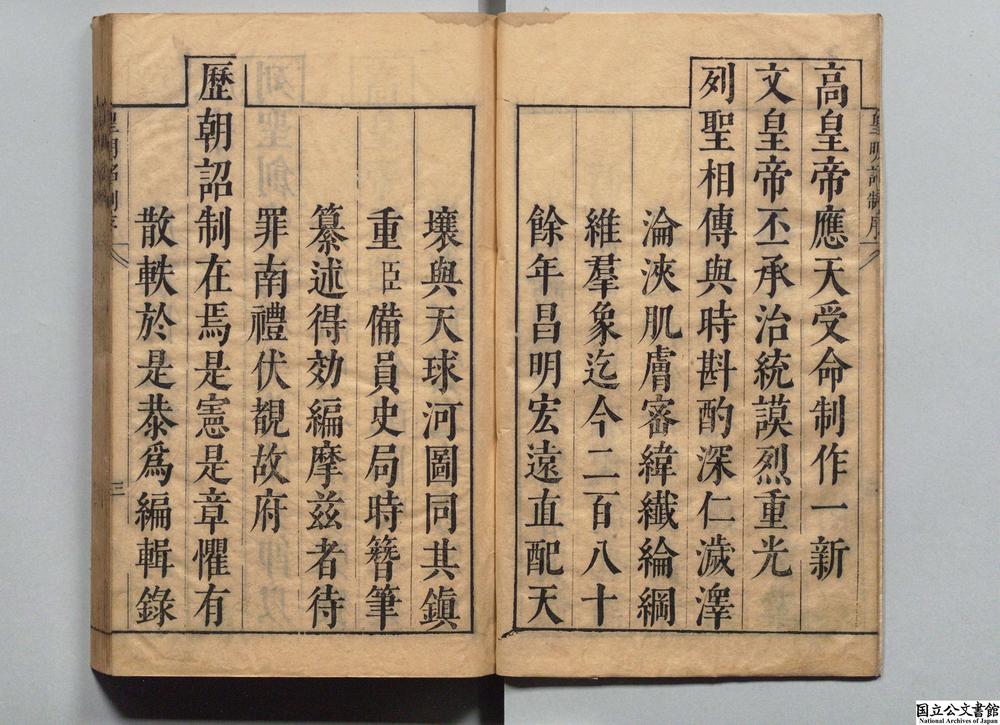 高皇帝應天受命制作一新
文皇帝丕承治統謨烈重光
列聖相傳與時斟酌深仁濊澤
淪浹肌膚審緯纖綸綱
維羣象迄今二百八十
餘年昌明宏遠直配天
壤與天球河圖同其鎮
重臣備員史局時簪筆
纂述得効編摩兹者待
罪南禮伏覩故府
歷朝詔制在焉是憲是章懼有
散軼於是恭爲編輯錄
三
国立公文書館
National Archives of Japan